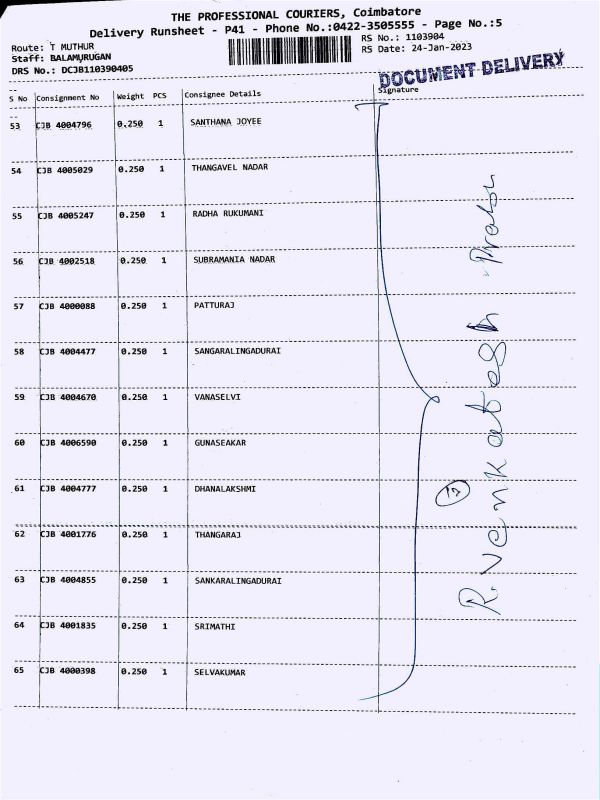 THE PROFESSIONAL COURIERS, Coimbatore
Delivery Runsheet - P41 - Phone No.:0422-3505555 - Page No.:5
Route: T MUTHUR
Staff: BALAMURUGAN
DRS No.: DCJB110390405
RS No.: 1103904
RS Date: 24-Jan-2023
DOCUMENT DELIVERY
S No Consignment No Weight PCS Consignee Details Signature
53 CJB 4004796 0.250 1 SANTHANA JOYEE
54 CJB 4005029 0.250 1 THANGAVEL NADAR
55 CJB 4005247 0.250 1 RADHA RUKUMANI
56 CJB 4002518 0.250 1 SUBRAMANIA NADAR
57 CJB 4000088 0.250 1 PATTURAJ
58 CJB 4004477 0.250 1 SANGARALINGADURAI
59 CJB 4004670 0.250 1 VANASELVI
60 CJB 4006590 0.250 1 GUNASEAKAR
61 CJB 4004777 0.250 1 DHANALAKSHMI
62 CJB 4001776 0.250 1 THANGARAJ
63 CJB 4004855 0.250 1 SANKARALINGADURAI
64 CJB 4001835 0.250 1 SRIMATHI
65 CJB 4000398 0.250 1 SELVAKUMAR
R. Venkatesh Prabu